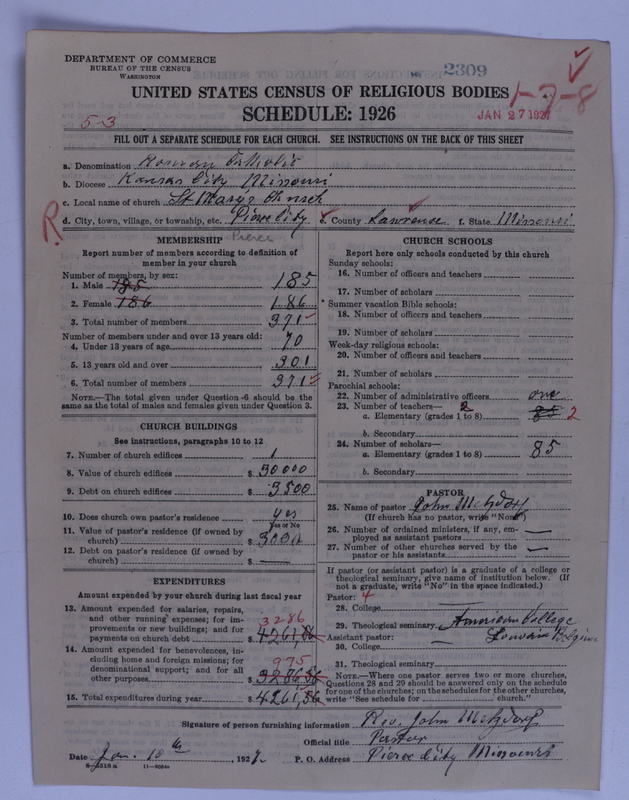 DEPARTMENT OF COMMERCE
BUREAU OF THE CENSUS
WASHINGTON
2309
UNITED STATES CENSUS OF RELIGIOUS BODIES
1-7-8
SCHEDULE: 1926
JAN 27 1927
5-3
FILL OUT A SEPARATE SCHEDULE FOR EACH CHURCH. SEE INSTRUCTIONS ON THE BACK OF THIS SHEET
a. Denomination Roman Catholic
b. Diocese Kansas City Missouri
c. Local name of church St Marys Church
d. City, town, village, or township, etc. Pierce City e. County Lawrence f. State Missouri
R
Pierce
MEMBERSHIP
Report number of members according to definition of member in your church
Number of members, by sex:
1. Male 185 185
2. Female 186 186
3. Total number of members 371
Number of members under and over 13 years old:
4. Under 13 years of age 70
5. 13 years old and over 301
6. Total number of members 371
NOTE.—The total given under Question 6 should be the same as the total of males and females given under Question 3.
CHURCH BUILDINGS
See instructions, paragraphs 10 to 12
7. Number of church edifices 1
8. Value of church edifices $ 30000
9. Debt on church edifices $ 3500
10. Does church own pastor's residence yes
Yes or No
11. Value of pastor's residence (if owned by church) $ 3000
12. Debt on pastor's residence (if owned by church) $ —
EXPENDITURES
Amount expended by your church during last fiscal year
13. Amount expended for salaries, repairs, and other running expenses; for improvements or new buildings; and for payments on church debt $ 4261,56
3286
14. Amount expended for benevolences, including home and foreign missions; for denominational support; and for all other purposes $ 3286,56
975
15. Total expenditures during year $ 4261,56
CHURCH SCHOOLS
Report here only schools conducted by this church
Sunday schools:
16. Number of officers and teachers
17. Number of scholars
Summer vacation Bible schools:
18. Number of officers and teachers
19. Number of scholars
Week-day religious schools:
20. Number of officers and teachers
21. Number of scholars
Parochial schools:
22. Number of administrative officers one
23. Number of teachers— 2
a. Elementary (grades 1 to 8) 85 2
b. Secondary
24. Number of scholars—
a. Elementary (grades 1 to 8) 85
b. Secondary
PASTOR
25. Name of pastor John Metzdorf
(If church has no pastor, write "None")
26. Number of ordained ministers, if any, employed as assistant pastors —
27. Number of other churches served by the pastor or his assistants —
If pastor (or assistant pastor) is a graduate of a college or theological seminary, give name of institution below. (If not a graduate, write "No" in the space indicated.)
Pastor: 4
28. College —
29. Theological seminary American College
Louvain Belgium
Assistant pastor: —
30. College
31. Theological seminary
NOTE.—Where one pastor serves two or more churches, Questions 28 and 29 should be answered only on the schedule for one of the churches; on the schedules for the other churches, write "See schedule for church."
Signature of person furnishing information Rev. John Metzdorf
Official title Pastor
Date Jan. 10th, 1927. P. O. Address Pierce City Missouri